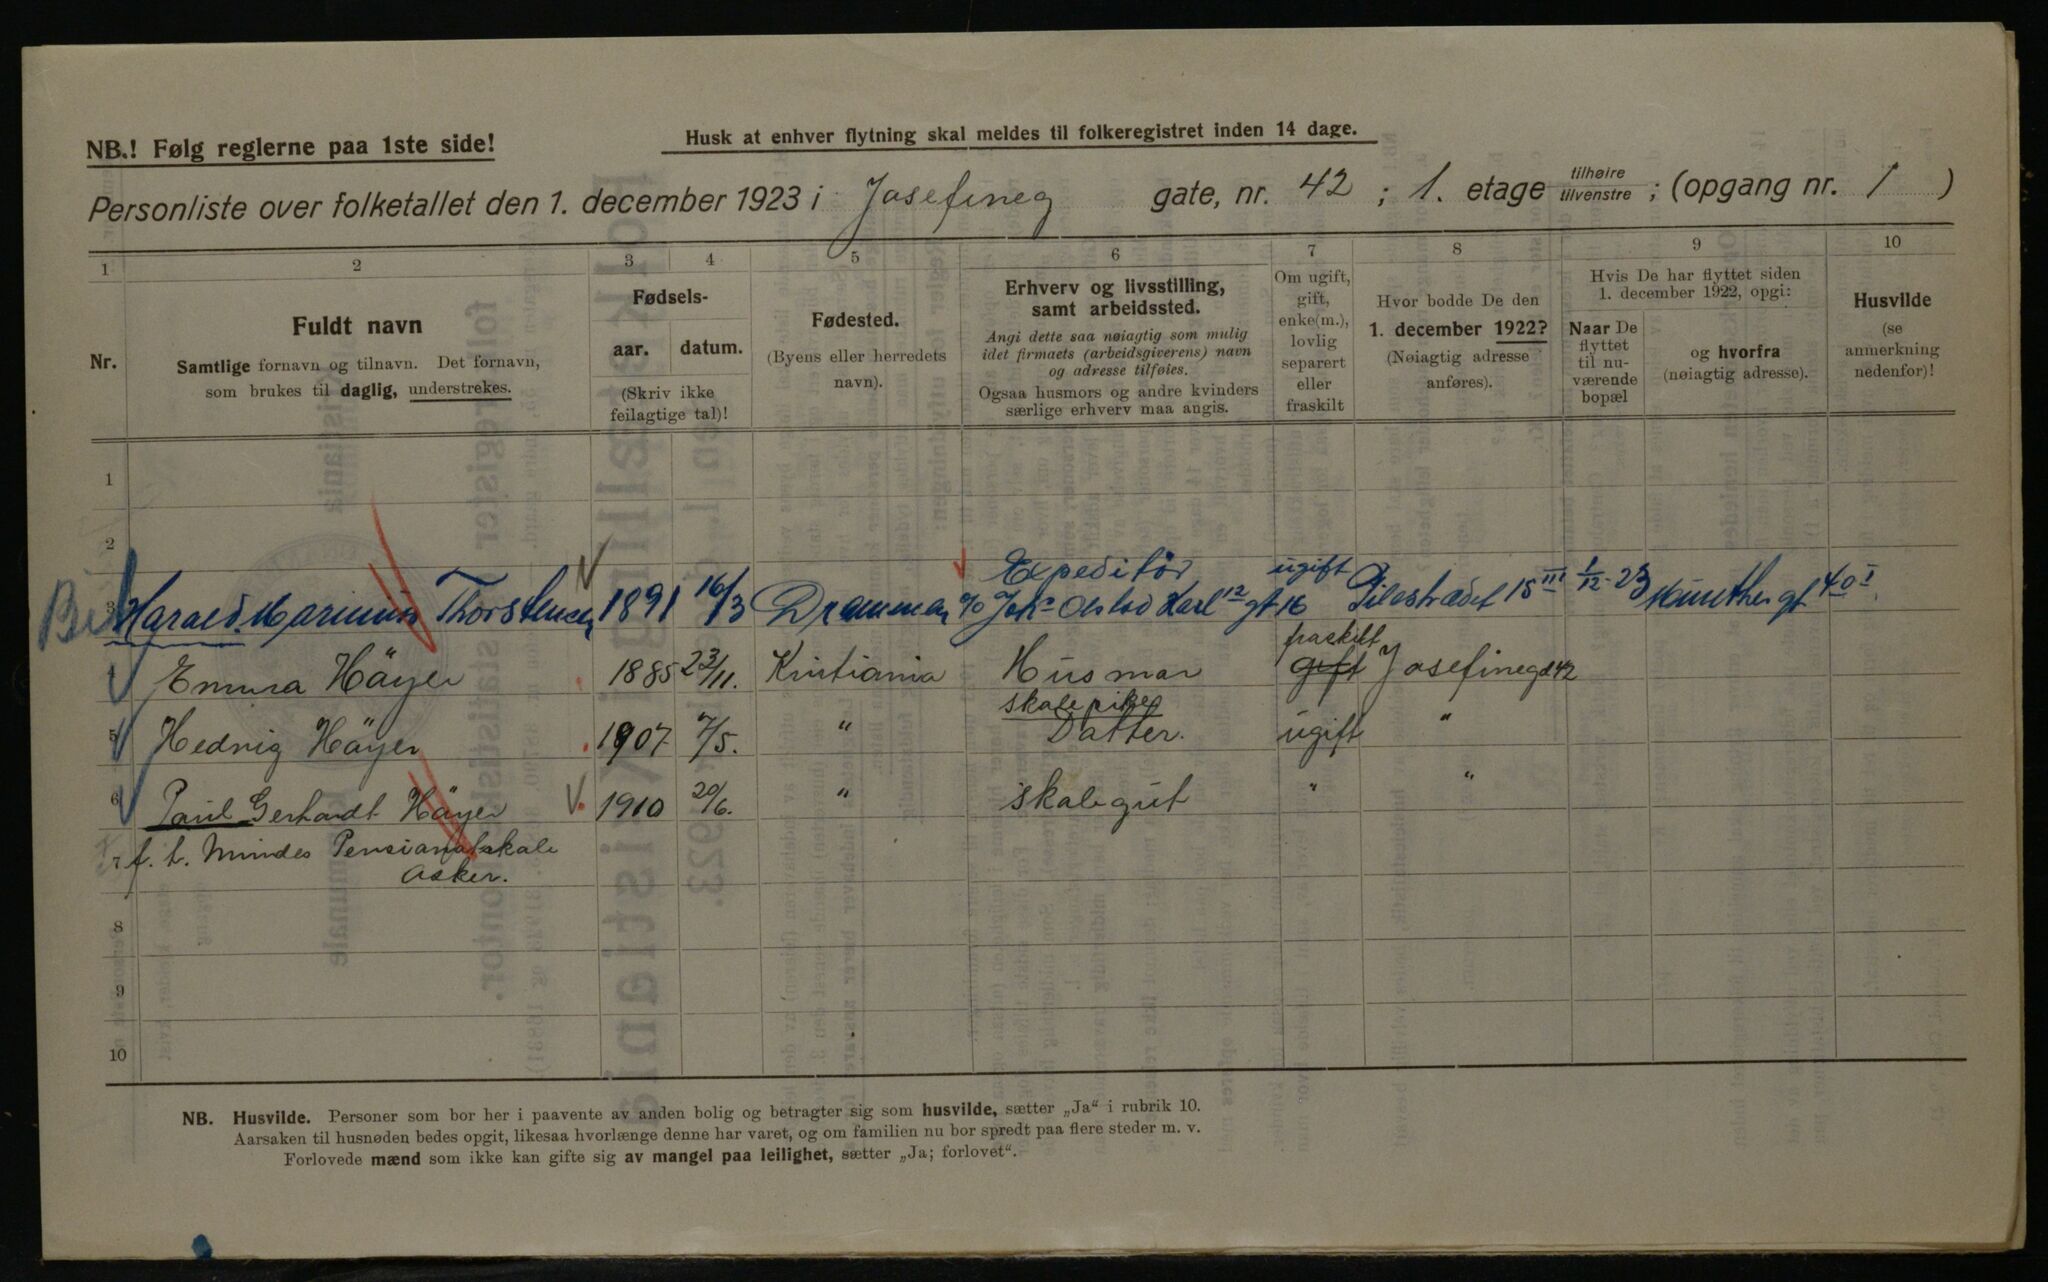 NB.! Følg reglerne paa 1ste side!
Husk at enhver flytning skal meldes til folkeregistret inden 14 dage.
Personliste over folketallet den 1. december 1923 i Josefineg gate, nr. 42 ; 1. etage tilhøire tilvenstre ; (opgang nr. 1 )
1 2 3 4 5 6 7 8 9 10
Nr.
Fuldt navn
Samtlige fornavn og tilnavn. Det fornavn,
som brukes til daglig, understrekes.
Fødsels-
aar. datum.
(Skriv ikke
feilagtige tal)!
Fødested.
(Byens eller herredets
navn).
Erhverv og livsstilling,
samt arbeidssted.
Angi dette saa nøiagtig som mulig
idet firmaets (arbeidsgiverens) navn
og adresse tilføies.
Ogsaa husmors og andre kvinders
særlige erhverv maa angis.
Om ugift,
gift,
enke(m.),
lovlig
separert
eller
fraskilt
Hvor bodde De den
1. december 1922?
(Nøiagtig adresse
anføres).
Hvis De har flyttet siden
1. december 1922, opgi:
Naar De
flyttet
til nu-
værende
bopæl
og hvorfra
(nøiagtig adresse).
Husvilde
(se
anmerkning
nedenfor)!
1
2
Expeditör
3 Harald Marinius Thorstensen 1891 16/3 Drammen ugift Pilestrædet 15 III 1/12-23 Munthesgt 40 I
fraskilt
Emma Häyer 1885 23/11. Kristiania Husmor gift Josefinegd 42
skolepike
5 Hedvig Häyer 1907 7/5. " Datter. ugift "
6 Paul Gerhardt Häyer 1910 20/6. " skolegut " "
f. t. Mindes Pensionatskole
Asker.
8
9
10
NB. Husvilde. Personer som bor her i paavente av anden bolig og betragter sig som husvilde, sætter „Ja“ i rubrik 10.
Aarsaken til husnøden bedes opgit, likesaa hvorlænge denne har varet, og om familien nu bor spredt paa flere steder m. v.
Forlovede mænd som ikke kan gifte sig av mangel paa leilighet, sætter „Ja; forlovet“.